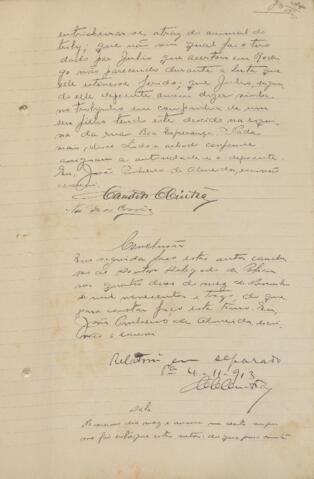 entrincheirar-se atraz do animal de
tróly, que não viu qual foi o tiro
dado por Julio que acertou em Rodri
go não parecendo durante a luta que
elle estivesse ferido, que Julio, segun
do elle depoente ouviu dizer, vinha
no trolynho em companhia de um
seu filho tendo este descido na esqui
na da rua Boa Esperança. Nada
mais disse. Lido e achado conforme
assignam a autoridade e o depoente.
Eu, João Pinheiro de Almeida, escrivão
escrevi.
Conclusão
Em seguida faço estes autos conclu
sos ao Doutor Delegado de Policia
aos quatro dias do mez de Novembro
de mil novecentos e treze, do que
para constar faço este termo. Eu,
João Pinheiro de Almeida escri
vão o escrevi.
Relatorio em separado
4-11-913
Data
No mesmo dia, mez e anno supra
me foi entregue estes autos; do que para constar